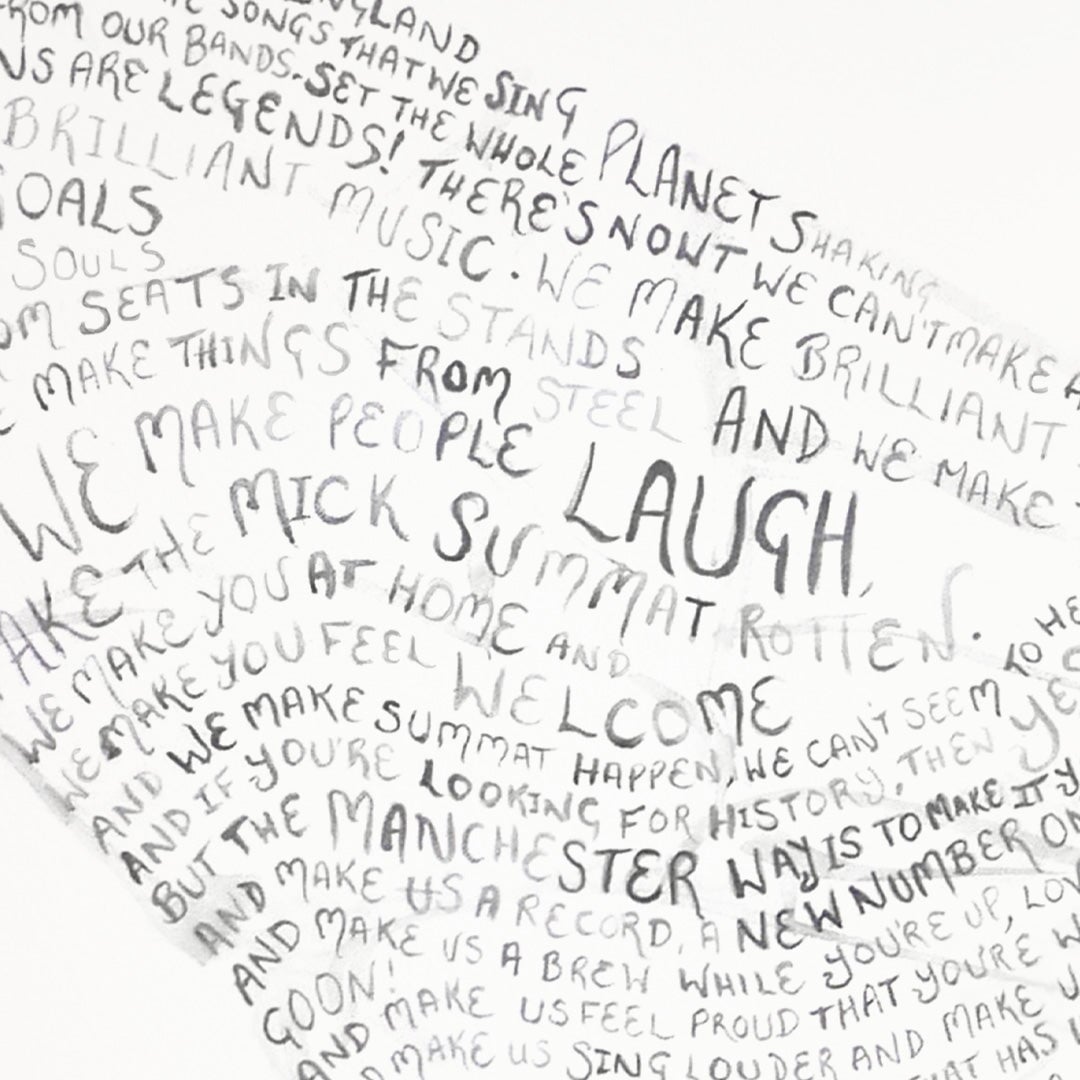 ENGLAND
SONGS THAT WE SING
FROM OUR BANDS. SET THE WHOLE PLANET SHAKING
ARE LEGENDS! THERE'S NOWT WE CAN'T MAKE
BRILLIANT MUSIC. WE MAKE BRILLIANT
GOALS
SOULS
SEATS IN THE STANDS AND WE MAKE
MAKE THINGS FROM STEEL
WE MAKE PEOPLE LAUGH,
THE MICK SUMMAT ROTTEN.
WE MAKE YOU AT HOME AND
WE MAKE YOU FEEL WELCOME
AND WE MAKE SUMMAT HAPPEN, WE CAN'T SEEM TO
AND IF YOU'RE LOOKING FOR HISTORY, THEN
BUT THE MANCHESTER WAY IS TO MAKE IT
AND MAKE US A RECORD, A NEW NUMBER
AND MAKE US A BREW WHILE YOU'RE UP,
GOON!
AND MAKE US FEEL PROUD THAT YOU'RE
MAKE US SING LOUDER AND MAKE
HAS